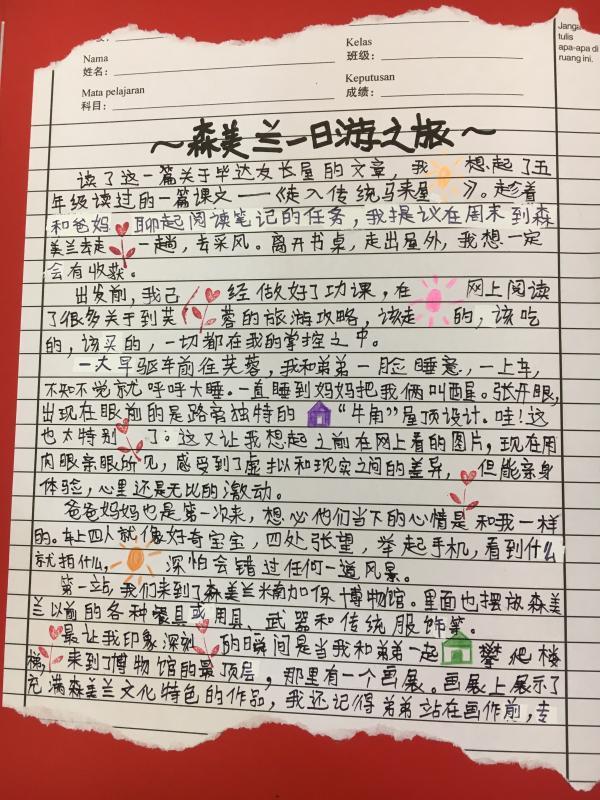 Janga
tulis
apa-apa di
ruang ini.
Nama
姓名：
Kelas
班级：
Mata pelajaran
科目：
Keputusan
成绩：
～森美兰一日游之旅～
读了这一篇关于毕达友长屋的文章，我想起了五
年级读过的一篇课文——《走入传统马来屋》。趁着
和爸妈聊起阅读笔记的任务，我提议在周末到森
美兰去走一趟，去采风。离开书桌，走出屋外，我想一定
会有收获。
出发前，我已经做好了功课，在网上阅读
了很多关于到芙蓉的旅游攻略，该走的，该吃
的，该买的，一切都在我的掌控之中。
一大早驱车前往芙蓉，我和弟弟一脸睡意，一上车，
不知不觉就呼呼大睡。一直睡到妈妈把我俩叫醒。张开眼，
出现在眼前的是路旁独特的“牛角”屋顶设计。哇！这
也太特别了。这又让我想起之前在网上看的图片，现在用
肉眼亲眼所见，感受到了虚拟和现实之间的差异，但能亲身
体验，心里还是无比的激动。
爸爸妈妈也是第一次来，想必他们当下的心情是和我一样
的。车上四人就像好奇宝宝，四处张望，举起手机，看到什么
就拍什么，深怕会错过任何一道风景。
第一站，我们来到了森美兰米南加保博物馆。里面也摆放森美
兰以前的各种餐具或用具、武器和传统服饰等。
最让我印象深刻的瞬间是当我和弟弟一起攀爬楼
梯，来到了博物馆的最顶层，那里有一个画展。画展上展示了
充满森美兰文化特色的作品，我还记得弟弟站在画作前，专